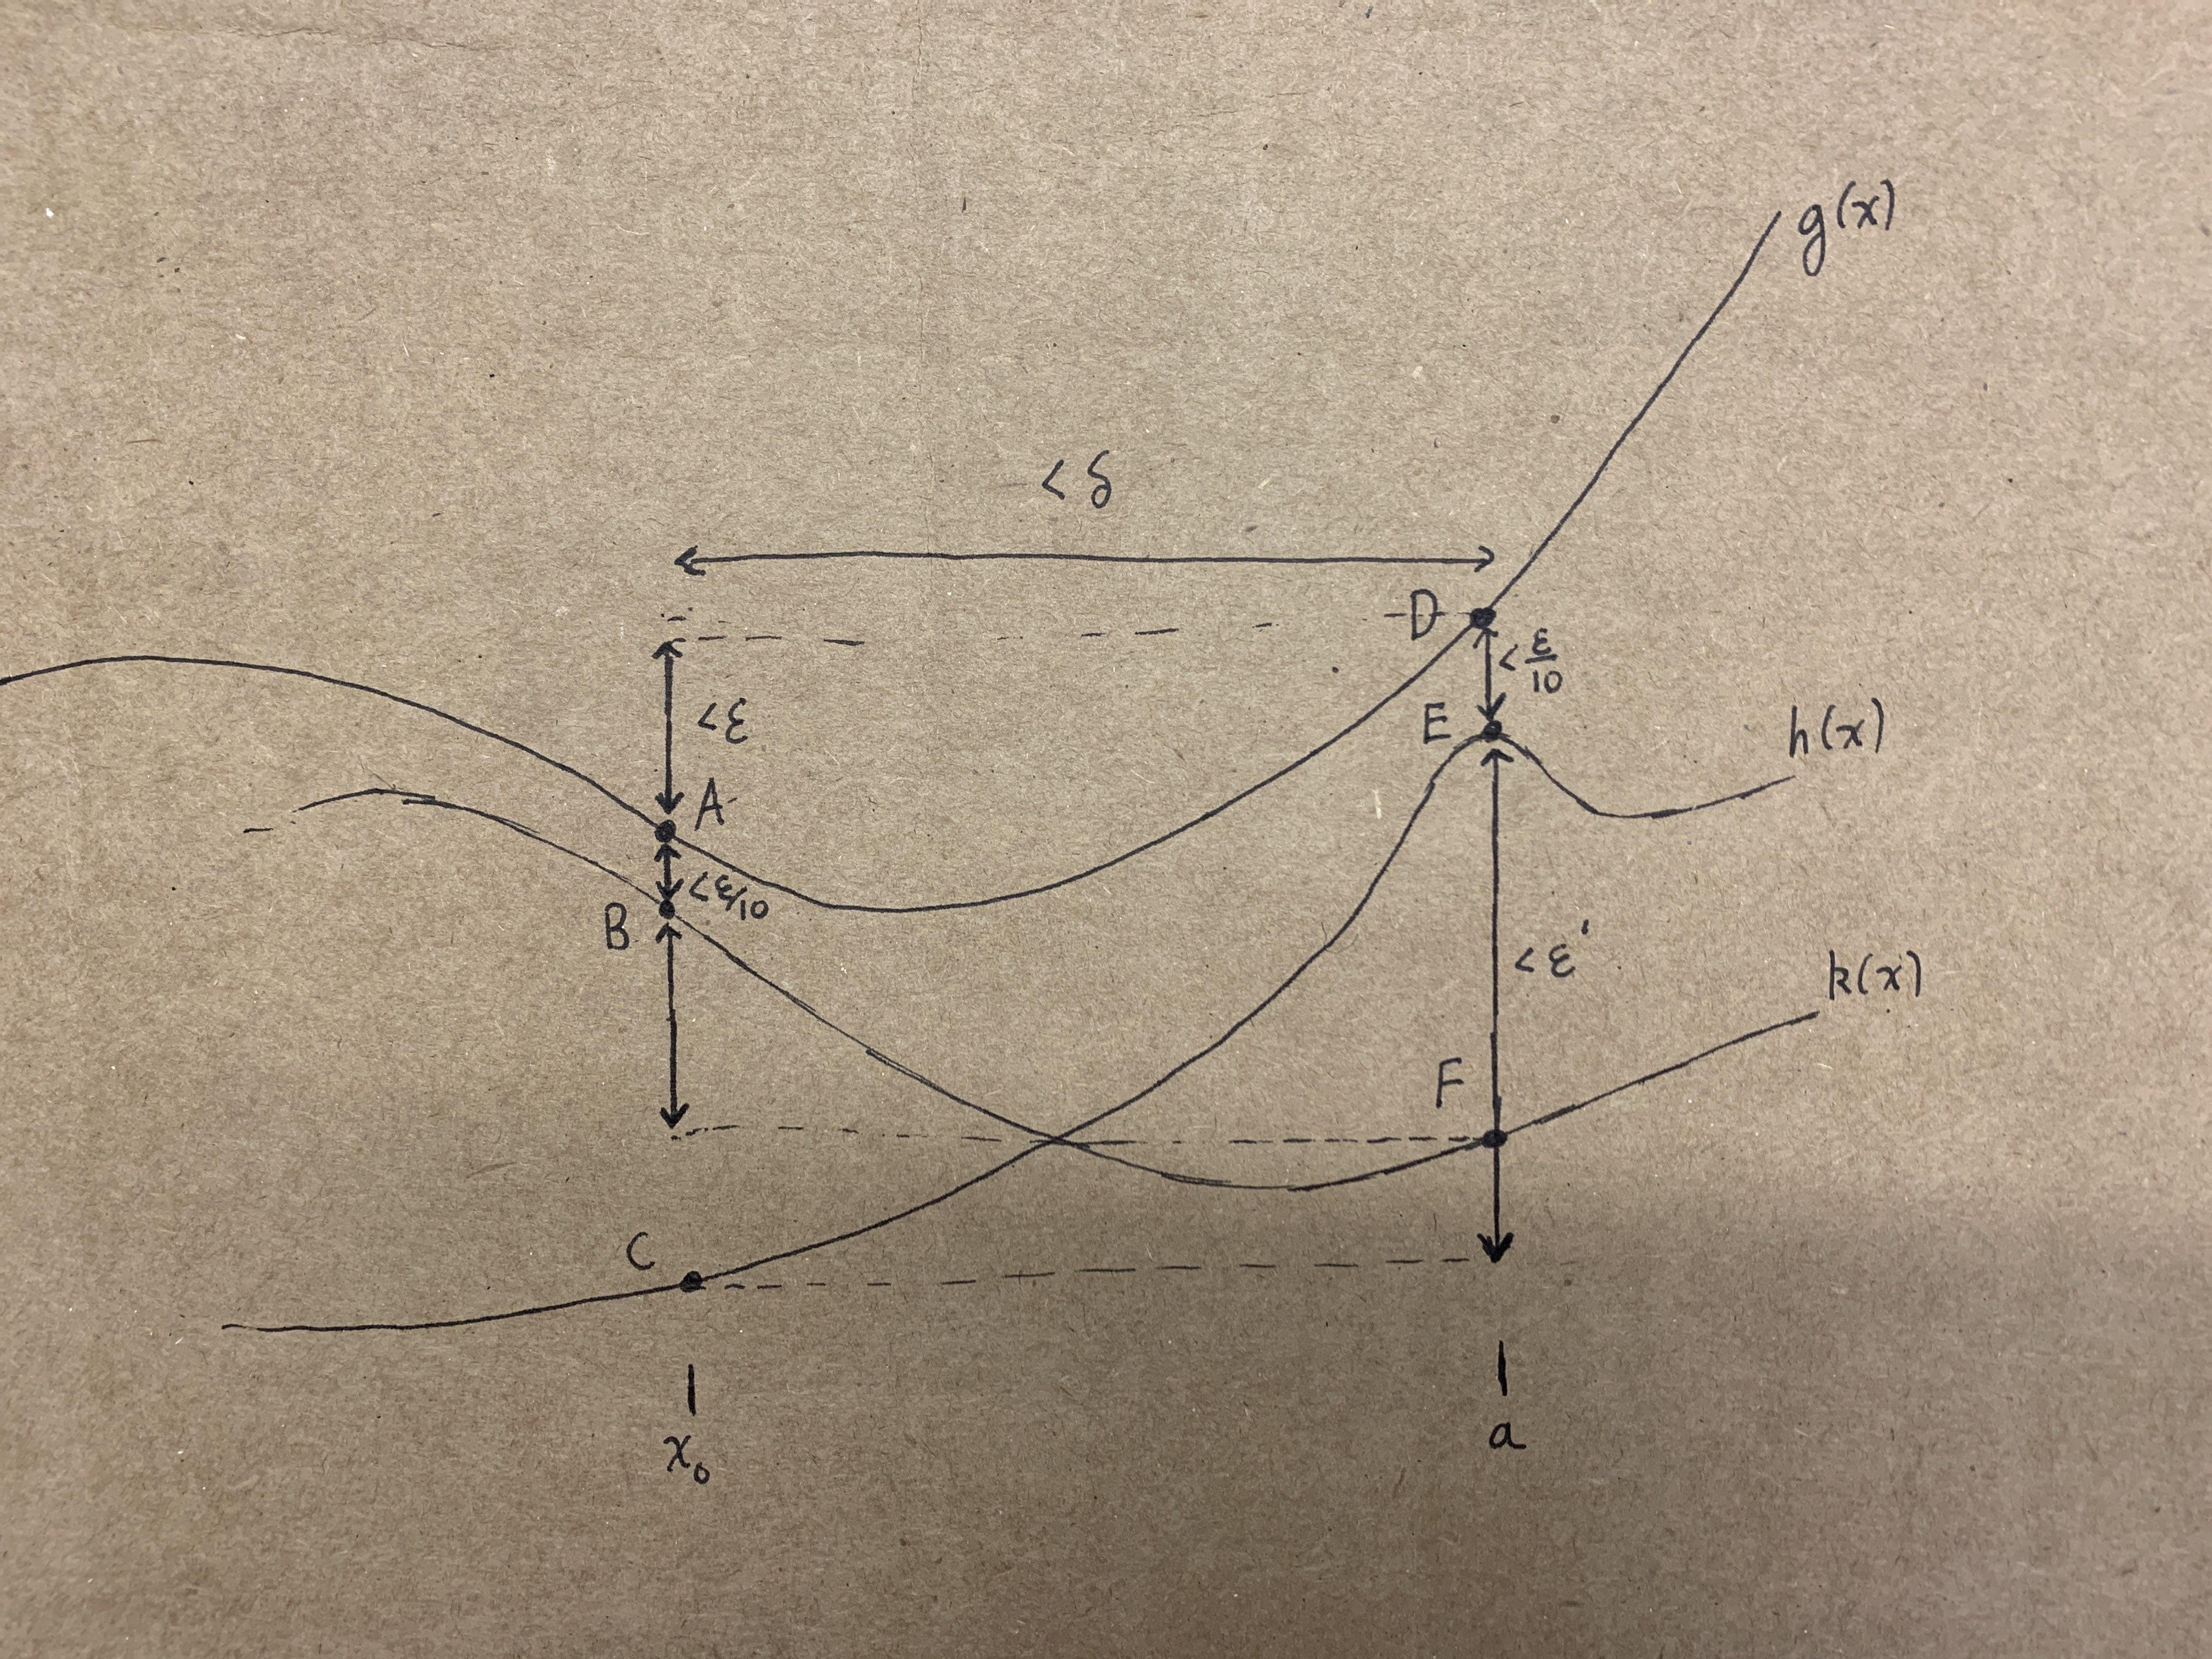 g(x)
< δ
D
< ε/10
< ε
E
h(x)
A
< ε/10
B
< ε'
k(x)
F
C
x₀
a